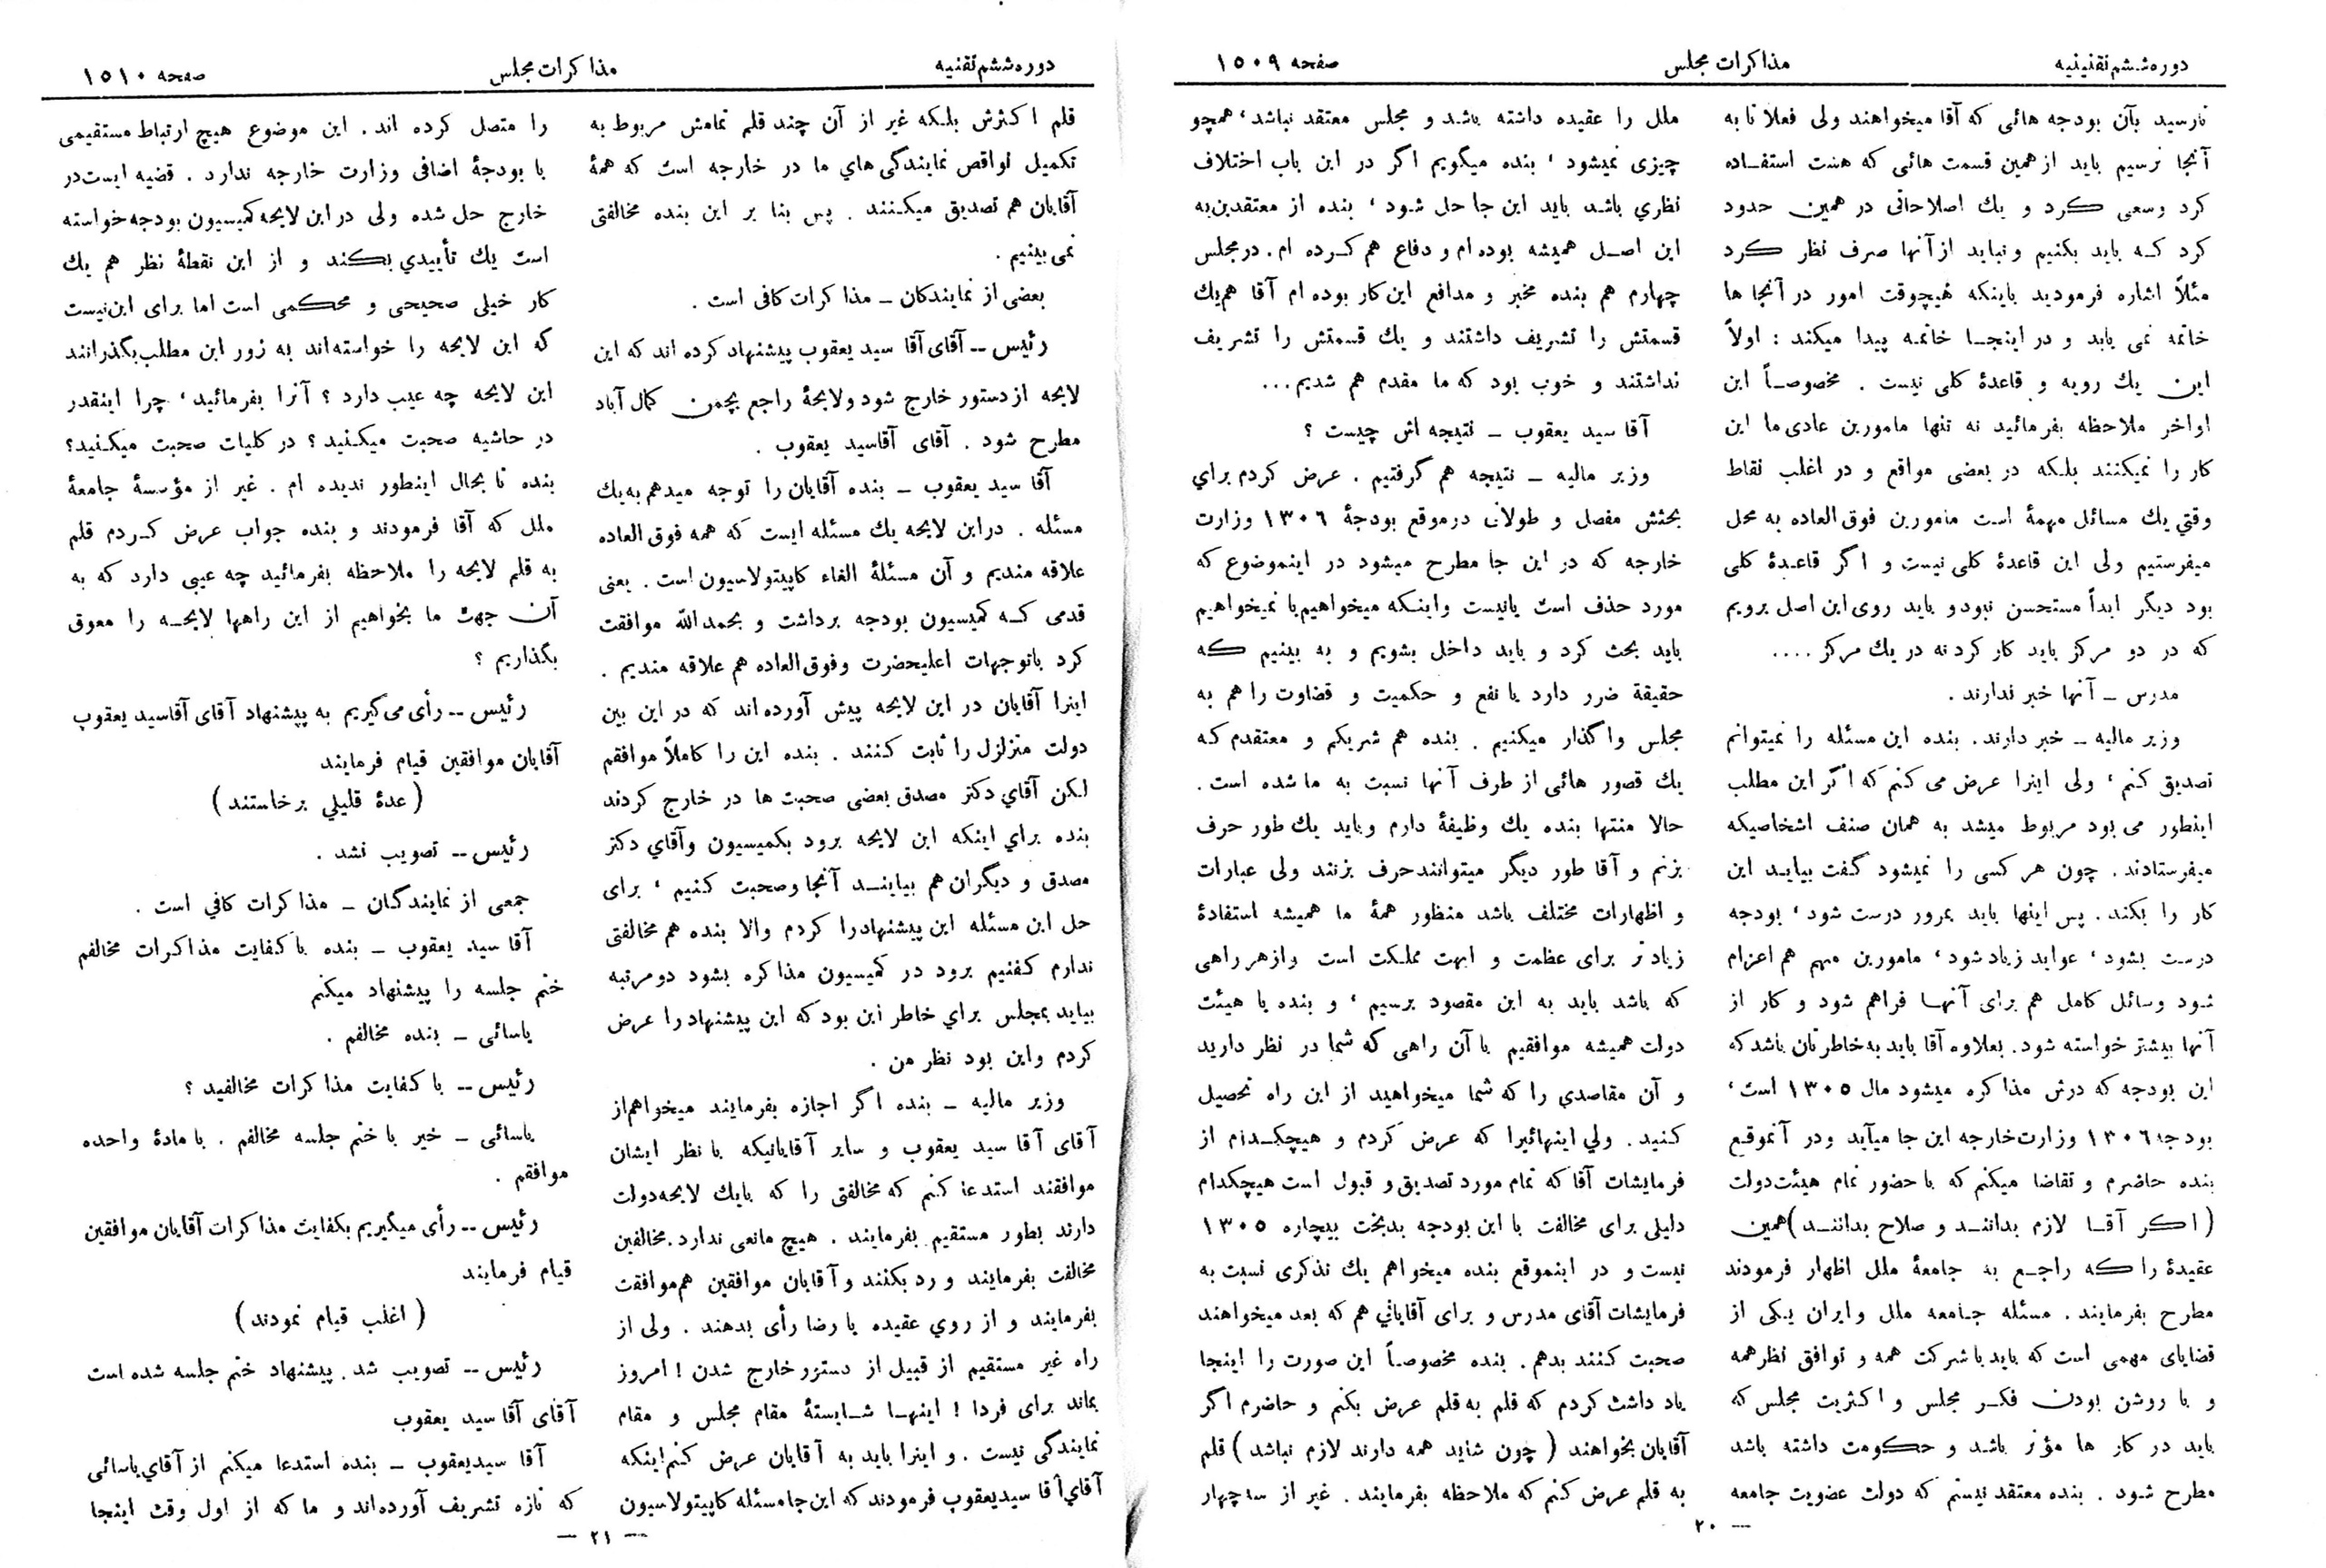 دوره ششم تقنینیه
مذاکرات مجلس
صفحه ۱۵۰۹
تارسید بآن بودجه هائی که آقا میخواهند ولی فعلا تا به
آنجا نرسیم باید از همین قسمت هائی که هست استفاده
کرد وسعی کرد و یك اصلاحاتی در همین حدود
کرد که باید بکنیم و نباید از آنها صرف نظر کرد
مثلاً اشاره فرمودید باینکه هیچوقت امور در آنجا ها
خاتمه نمی یابد و در اینجا خاتمه پیدا میکند : اولاً
این یك رویه و قاعدهٔ کلی نیست . مخصوصاً این
اواخر ملاحظه بفرمائید نه تنها مامورین عادی ما این
کار را نمیکنند بلکه در بعضی مواقع و در اغلب نقاط
وقتي یك مسائل مهمهٔ است مامورین فوق العاده به محل
میفرستیم ولی این قاعدهٔ کلی نیست و اگر قاعدهٔ کلی
بود دیگر ابداً مستحسن نبود و باید روی این اصل برویم
که در دو مرکز باید کار کرد نه در یك مرکز ....
مدرس ــ آنها خبر ندارند .
وزیر مالیه ــ خبر دارند. بنده این مسئله را نمیتوانم
تصدیق کنم ، ولی اینرا عرض می کنم که اگر این مطلب
اینطور می بود مربوط میشد به همان صنف اشخاصیکه
میفرستادند . چون هر کسی را نمیشود گفت بیاید این
کار را بکند . پس اینها باید بمرور درست شود ، بودجه
درست بشود ، عواید زیاد شود ، مامورین مهم هم اعزام
شود وسائل کامل هم برای آنها فراهم شود و کار از
آنها بیشتر خواسته شود. بعلاوه آقا باید به خاطرتان باشد که
این بودجه که درش مذاکره میشود مال ۱۳۰۵ است ،
بودجه ۱۳۰۶ وزارت خارجه این جا میآید ودر آنموقع
بنده حاضرم و تقاضا میکنم که با حضور تمام هیئت دولت
( اکر آقا لازم بدانند و صلاح بدانند ) همین
عقیدهٔ را که راجع به جامعهٔ ملل اظهار فرمودند
مطرح بفرمایند . مسئله جامعه ملل وایران یکی از
قضایای مهمی است که باید با شرکت همه و توافق نظر همه
و با روشن بودن فکر مجلس و اکثریت مجلس که
باید در کار ها مؤثر باشد و حکومت داشته باشد
مطرح شود . بنده معتقد نیستم که دولت عضویت جامعه
ملل را عقیده داشته باشد و مجلس معتقد نباشد ، همچو
چیزی نمیشود ، بنده میگویم اگر در این باب اختلاف
نظري باشد باید این جا حل شود ، بنده از معتقدین به
این اصل همیشه بوده ام و دفاع هم کرده ام . در مجلس
چهارم هم بنده مخبر و مدافع این کار بوده ام آقا هم یك
قسمتش را تشریف داشتند و یك قسمتش را تشریف
نداشتند و خوب بود که ما مقدم هم شدیم...
آقا سید یعقوب ــ نتیجه اش چیست ؟
وزیر مالیه ــ نتیجه هم گرفتیم . عرض کردم براي
بحثش مفصل و طولانی در موقع بودجهٔ ۱۳۰۶ وزارت
خارجه که در این جا مطرح میشود در اینموضوع که
مورد حذف است یا نیست و اینکه میخواهیم یا نمیخواهیم
باید بحث کرد و باید داخل بشویم و به بینیم که
حقیقة ضرر دارد یا نفع و حکمیت و قضاوت را هم به
مجلس واگذار میکنیم . بنده هم شریکم و معتقدم که
یك قصور هائی از طرف آنها نسبت به ما شده است .
حالا منتها بنده یك وظیفهٔ دارم و باید یك طور حرف
بزنم و آقا طور دیگر میتوانند حرف بزنند ولی عبارات
و اظهارات مختلف باشد منظور همهٔ ما همیشه استفادهٔ
زیاد تر برای عظمت و ابهت مملکت است و از هر راهی
که باشد باید به این مقصود برسیم ، و بنده با هیئت
دولت همیشه موافقیم با آن راهی که شما در نظر دارید
و آن مقاصدي را که شما میخواهید از این راه تحصیل
کنید . ولي اینهائیرا که عرض کردم و هیچکدام از
فرمایشات آقا که تمام مورد تصدیق و قبول است هیچکدام
دلیلی برای مخالفت با این بودجه بدبخت بیچاره ۱۳۰۵
نیست و در اینموقع بنده میخواهم یك تذکری نسبت به
فرمایشات آقای مدرس و برای آقایانی هم که بعد میخواهند
صحبت کنند بدهم . بنده مخصوصاً این صورت را اینجا
یاد داشت کردم که قلم به قلم عرض بکنم و حاضرم اگر
آقایان بخواهند ( چون شاید همه دارند لازم نباشد ) قلم
به قلم عرض کنم که ملاحظه بفرمایند . غیر از سه چهار
— ۲۰
دوره ششم تقنیه
مذاکرات مجلس
صفحه ۱۵۱۰
قلم اکثرش بلکه غیر از آن چند قلم تمامش مربوط به
تکمیل نواقص نمایندگی هاي ما در خارجه است که همهٔ
آقایان هم تصدیق میکنند . پس بنا بر این بنده مخالفتی
نمی بینیم .
بعضی از نمایندکان ــ مذاکرات کافی است .
رئیس ــ آقای آقا سید یعقوب پیشنهاد کرده اند که این
لایحه از دستور خارج شود ولایحهٔ راجع بچمن کمال آباد
مطرح شود . آقای آقاسید یعقوب .
آقا سید یعقوب ــ بنده آقایان را توجه میدهم به یك
مسئله . دراین لایحه یك مسئله ایست که همه فوق العاده
علاقه مندیم و آن مسئلهٔ الغاء کاپیتولاسیون است . یعنی
قدمی که کمیسیون بودجه برداشت و بحمدالله موافقت
کرد باتوجهات اعلیحضرت وفوق العاده هم علاقه مندیم .
اینرا آقایان در این لایحه پیش آورده اند که در این بین
دولت متزلزل را ثابت کنند . بنده این را کاملاً موافقم
لکن آقاي دکتر مصدق بعضی صحبت ها در خارج کردند
بنده براي اینکه این لایحه برود بکمیسیون وآقاي دکتر
مصدق و دیگران هم بیایند آنجا وصحبت کنیم ، برای
حل این مسئله این پیشنهاد را کردم والا بنده هم مخالفتی
ندارم کفتیم برود در کمیسیون مذاکره بشود دو مرتبه
بیاید بمجلس براي خاطر این بود که این پیشنهاد را عرض
کردم واین بود نظر من .
وزیر مالیه ــ بنده اگر اجازه بفرمایند میخواهم از
آقای آقا سید یعقوب و سایر آقایانیکه با نظر ایشان
موافقند استدعا کنم که مخالفتی را که بایك لایحه دولت
دارند بطور مستقیم بفرمایند . هیچ مانعی ندارد . مخالفین
مخالفت بفرمایند و رد بکنند و آقایان موافقین هم موافقت
بفرمایند و از روي عقیده یا رضا رأی بدهند . ولی از
راه غیر مستقیم از قبیل از دستور خارج شدن ! امروز
بماند برای فردا ! اینها شایستهٔ مقام مجلس و مقام
نمایندگی نیست . و اینرا باید به آقایان عرض کنم اینکه
آقاي آقا سیدیعقوب فرمودند که این جا مسئله کاپیتولاسیون
را متصل کرده اند . این موضوع هیچ ارتباط مستقیمی
با بودجهٔ اضافی وزارت خارجه ندارد . قضیه ایست در
خارج حل شده ولی در این لایحه کمیسیون بودجه خواسته
است یك تأییدي بکند و از این نقطهٔ نظر هم یك
کار خیلی صحیحی و محکمی است اما برای این نیست
که این لایحه را خواسته اند به زور این مطلب بگذرانند
این لایحه چه عیب دارد ؟ آنرا بفرمائید ، چرا اینقدر
در حاشیه صحبت میکنید ؟ در کلیات صحبت میکنید؟
بنده تا بحال اینطور ندیده ام . غیر از مؤسسهٔ جامعهٔ
ملل که آقا فرمودند و بنده جواب عرض کردم قلم
به قلم لایحه را ملاحظه بفرمائید چه عیبی دارد که به
آن جهت ما بخواهیم از این راهها لایحه را معوق
بگذاریم ؟
رئیس ــ رأی می گیریم به پیشنهاد آقای آقاسید یعقوب
آقایان موافقین قیام فرمایند
( عدهٔ قلیلي برخاستند )
رئیس ــ تصویب نشد .
جمعی از نمایندگان ــ مذاکرات کافي است .
آقا سید یعقوب ــ بنده با کفایت مذاکرات مخالفم
ختم جلسه را پیشنهاد میکنم
یاسائی ــ بنده مخالفم .
رئیس ــ با کفایت مذاکرات مخالفید ؟
یاسائی ــ خیر با ختم جلسه مخالفم . با مادهٔ واحده
موافقم .
رئیس ــ رأی میگیریم بکفایت مذاکرات آقایان موافقین
قیام فرمایند
( اغلب قیام نمودند )
رئیس ــ تصویب شد . پیشنهاد ختم جلسه شده است
آقای آقا سید یعقوب
آقا سیدیعقوب ــ بنده استدعا میکنم از آقاي یاسائی
که تازه تشریف آورده اند و ما که از اول وقت اینجا
— ۲۱ —